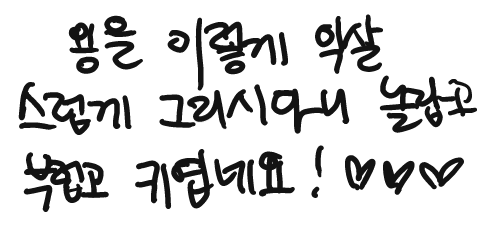 용을 이렇게 익살
스럽게 그리시다니 놀랍고
부럽고 키엽네요! ♡♡♡